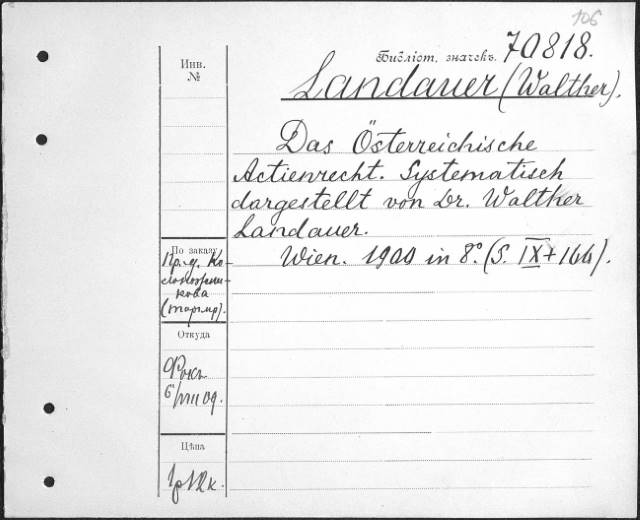 106
Библіот. значекъ 70818.
Инв.
№
Landauer (Walther).
Das Österreichische
Actienrecht. Systematisch
dargestellt von Dr. Walther
Landauer.
Wien. 1900 in 8°. (S. IX + 166).
По заказу
Пр.д. Ко-
кова
Откуда
Фокъ
6/VIII 09.
Цѣна
1р12к.